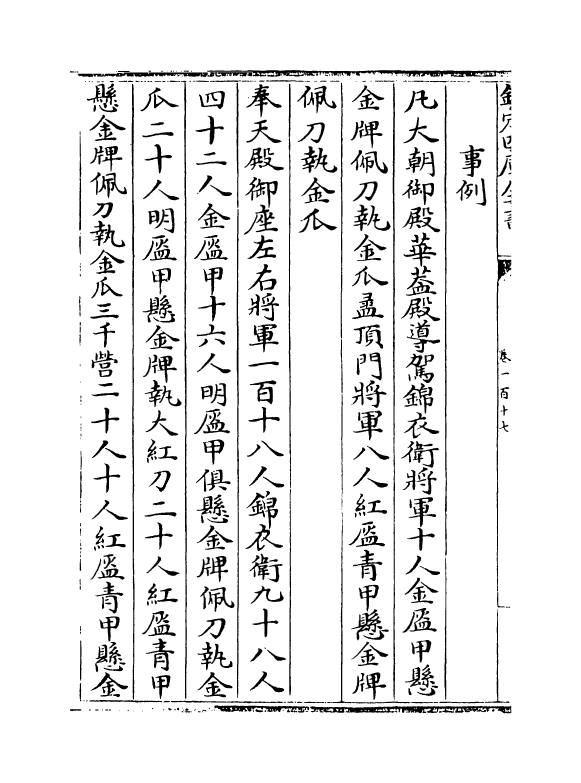 欽定四庫全書
卷一百十七
事例
凡大朝御殿華葢殿導駕錦衣衛將軍十人金盔甲懸
金牌佩刀執金瓜孟頂門將軍八人紅盔青甲懸金牌
佩刀執金瓜
奉天殿御座左右將軍一百十八人錦衣衛九十八人
四十二人金盔甲十六人明盔甲俱懸金牌佩刀執金
瓜二十人明盔甲懸金牌執大紅刀二十人紅盔青甲
懸金牌佩刀執金瓜三千營二十人十人紅盔青甲懸金